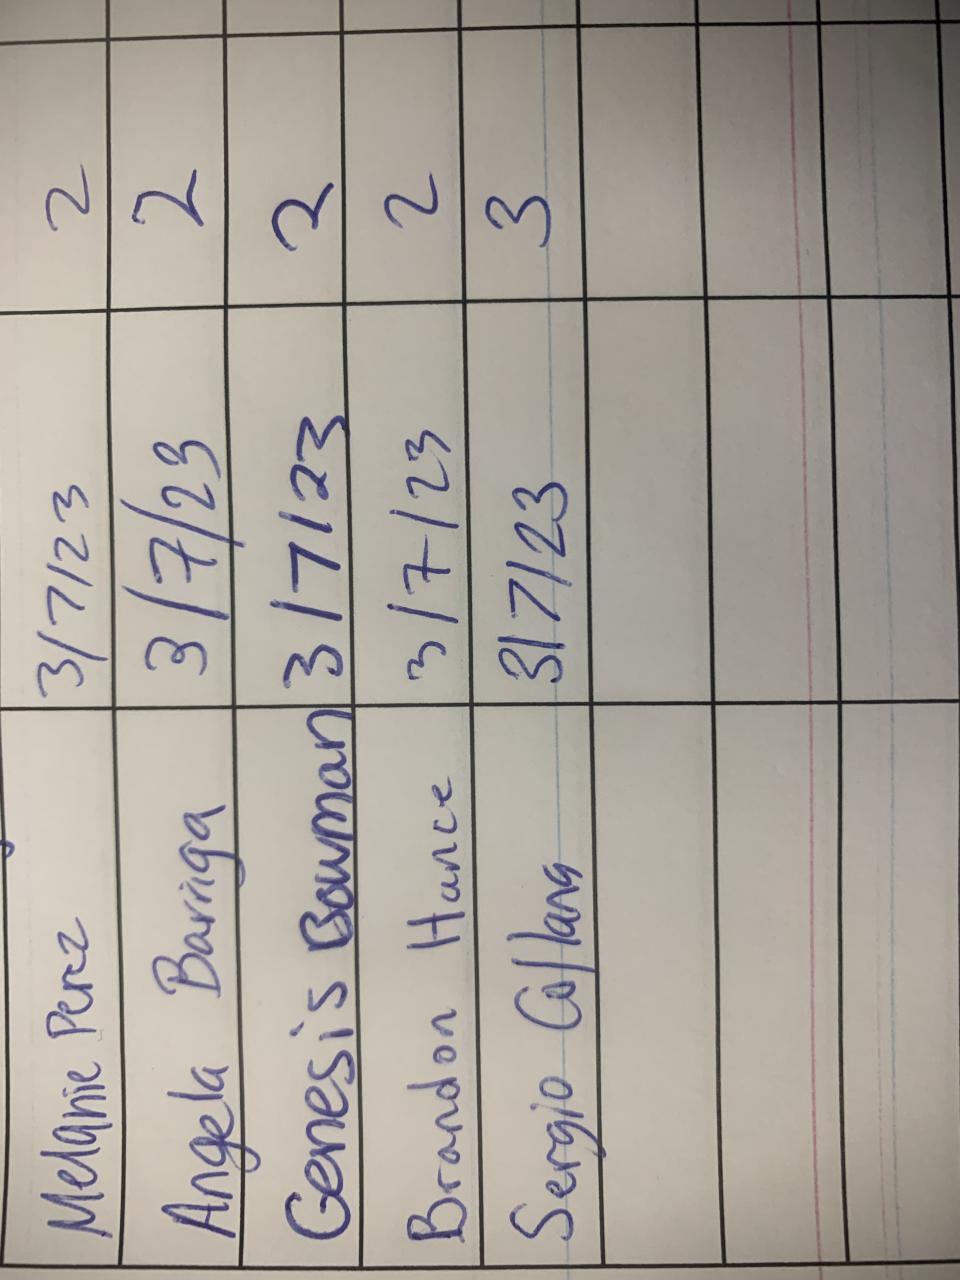 Melanie Perez 3/7/23 2
Angela Barriga 3/7/23 2
Genesis Bowman 3/7/23 2
Brandon Hance 3/7/23 2
Sergio 3/7/23 3